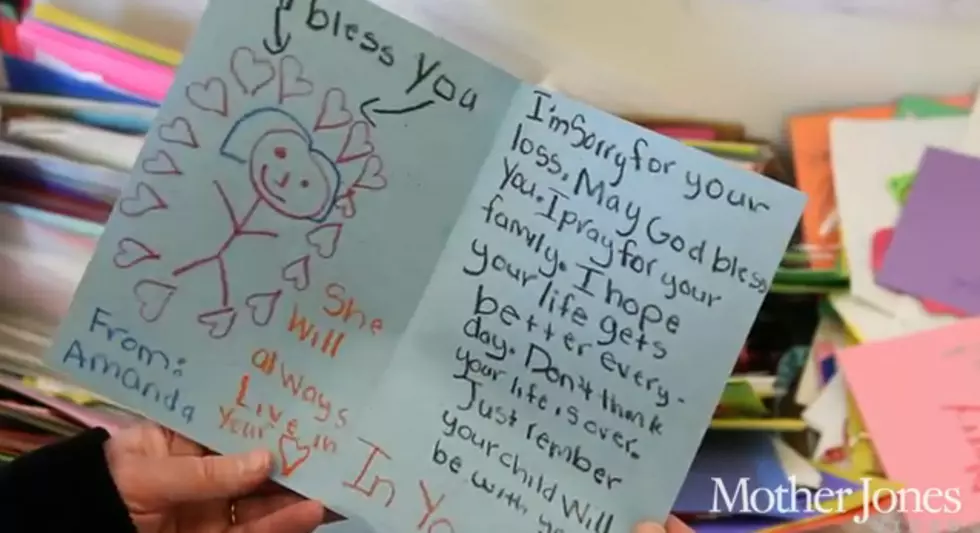 bless you
She
will
always
Live in
Your
From:
Amanda
I'm Sorry for your
loss. May God bless
You. I pray for your
family. I hope
your life gets
better every-
day. Don't think
your life is over.
Just remember
your child will
be with
In Yo
Mother Jones